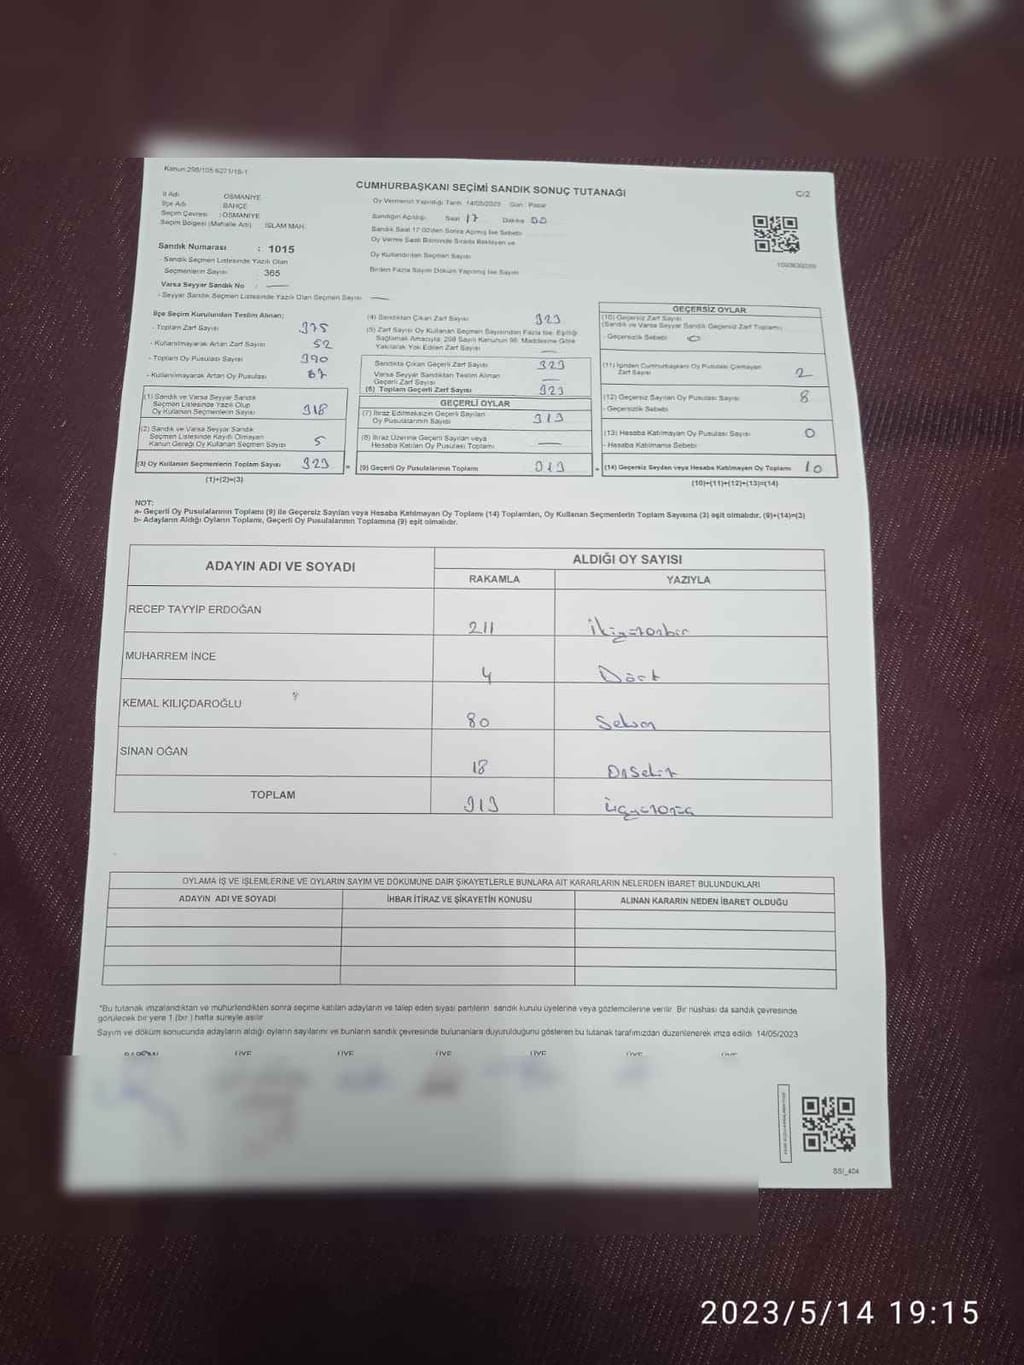 Kanun:298/105 6271/18-1
CUMHURBAŞKANI SEÇİMİ SANDIK SONUÇ TUTANAĞI
C/2
İl Adı : OSMANİYE
İlçe Adı : BAHÇE
Seçim Çevresi : OSMANİYE
Seçim Bölgesi (Mahalle Adı) İSLAM MAH.
Sandık Numarası : 1015
- Sandık Seçmen Listesinde Yazılı Olan
Seçmenlerin Sayısı : 365
Varsa Seyyar Sandık No :
- Seyyar Sandık Seçmen Listesinde Yazılı Olan Seçmen Sayısı
Oy Vermenin Yapıldığı Tarih 14/05/2023 Gün : Pazar
Sandığın Açıldığı Saat 17 Dakika 00
Sandık Saat 17:00'den Sonra Açılmış İse Sebebi
Oy Verme Saati Bitiminde Sırada Bekleyen ve
Oy Kullandırılan Seçmen Sayısı
Birden Fazla Sayım Döküm Yapılmış İse Sayısı
İlçe Seçim Kurulundan Teslim Alınan;
- Toplam Zarf Sayısı 375
- Kullanılmayarak Artan Zarf Sayısı 52
- Toplam Oy Pusulası Sayısı 390
- Kullanılmayarak Artan Oy Pusulası 67
(1) Sandık ve Varsa Seyyar Sandık
Seçmen Listesinde Yazılı Olup
Oy Kullanan Seçmenlerin Sayısı 318
(2) Sandık ve Varsa Seyyar Sandık
Seçmen Listesinde Kayıtlı Olmayan
Kanun Gereği Oy Kullanan Seçmen Sayısı 5
(3) Oy Kullanan Seçmenlerin Toplam Sayısı 323
(1)+(2)=(3)
(4) Sandıktan Çıkan Zarf Sayısı 323
(5) Zarf Sayısı Oy Kullanan Seçmen Sayısından Fazla İse, Eşitliği
Sağlamak Amacıyla, 298 Sayılı Kanunun 98. Maddesine Göre
Yakılarak Yok Edilen Zarf Sayısı
Sandıkta Çıkan Geçerli Zarf Sayısı 323
Varsa Seyyar Sandıktan Teslim Alınan
Geçerli Zarf Sayısı
(6) Toplam Geçerli Zarf Sayısı 323
GEÇERLİ OYLAR
(7) İtiraz Edilmeksizin Geçerli Sayılan
Oy Pusulalarının Sayısı 313
(8) İtiraz Üzerine Geçerli Sayılan veya
Hesaba Katılan Oy Pusulası Toplamı
= (9) Geçerli Oy Pusulalarının Toplamı 313
GEÇERSİZ OYLAR
(10) Geçersiz Zarf Sayısı
(Sandık ve Varsa Seyyar Sandık Geçersiz Zarf Toplamı)
- Geçersizlik Sebebi 0
(11) İçinden Cumhurbaşkanı Oy Pusulası Çıkmayan
Zarf Sayısı 2
(12) Geçersiz Sayılan Oy Pusulası Sayısı 8
- Geçersizlik Sebebi
(13) Hesaba Katılmayan Oy Pusulası Sayısı 0
- Hesaba Katılmama Sebebi
+ (14) Geçersiz Sayılan veya Hesaba Katılmayan Oy Toplamı 10
(10)+(11)+(12)+(13)=(14)
NOT:
a- Geçerli Oy Pusulalarının Toplamı (9) ile Geçersiz Sayılan veya Hesaba Katılmayan Oy Toplamı (14) Toplamları, Oy Kullanan Seçmenlerin Toplam Sayısına (3) eşit olmalıdır. (9)+(14)=(3)
b- Adayların Aldığı Oyların Toplamı, Geçerli Oy Pusulalarının Toplamına (9) eşit olmalıdır.
ADAYIN ADI VE SOYADI
ALDIĞI OY SAYISI
RAKAMLA YAZIYLA
RECEP TAYYİP ERDOĞAN 211 İkiyüzonbir
MUHARREM İNCE 4 Dört
KEMAL KILIÇDAROĞLU 80 Seksen
SİNAN OĞAN 18 Onsekiz
TOPLAM 313 Üçyüzonüç
OYLAMA İŞ VE İŞLEMLERİNE VE OYLARIN SAYIM VE DÖKÜMÜNE DAİR ŞİKAYETLERLE BUNLARA AİT KARARLARIN NELERDEN İBARET BULUNDUKLARI
ADAYIN ADI VE SOYADI İHBAR İTİRAZ VE ŞİKAYETİN KONUSU ALINAN KARARIN NEDEN İBARET OLDUĞU
*Bu tutanak imzalandıktan ve mühürlendikten sonra seçime katılan adayların ve talep eden siyasi partilerin sandık kurulu üyelerine veya gözlemcilerine verilir. Bir nüshası da sandık çevresinde
görülecek bir yere 1 (bir ) hafta süreyle asılır
Sayım ve döküm sonucunda adayların aldığı oyların sayılarını ve bunların sandık çevresinde bulunanlara duyurulduğunu gösteren bu tutanak tarafımızdan düzenlenerek imza edildi. 14/05/2023
BAŞKAN ÜYE ÜYE ÜYE ÜYE ÜYE
SSI_404
2023/5/14 19:15